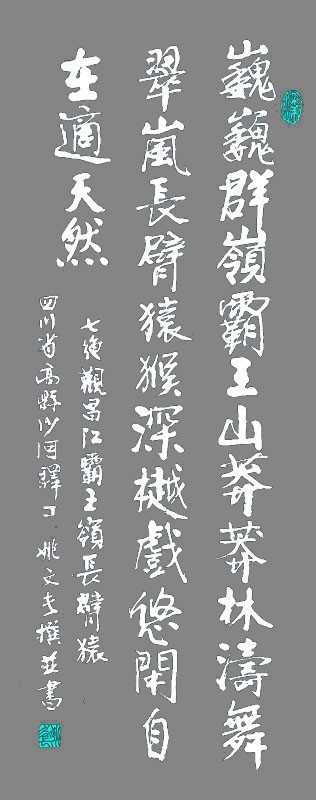 巍巍群嶺霸王山莽莽林濤舞
翠嵐長臂猿猴深樾戲悠閑自
在適天然
七絕觀昌江霸王嶺長臂猿
四川省高縣沙河驛丁 姚文長撰並書